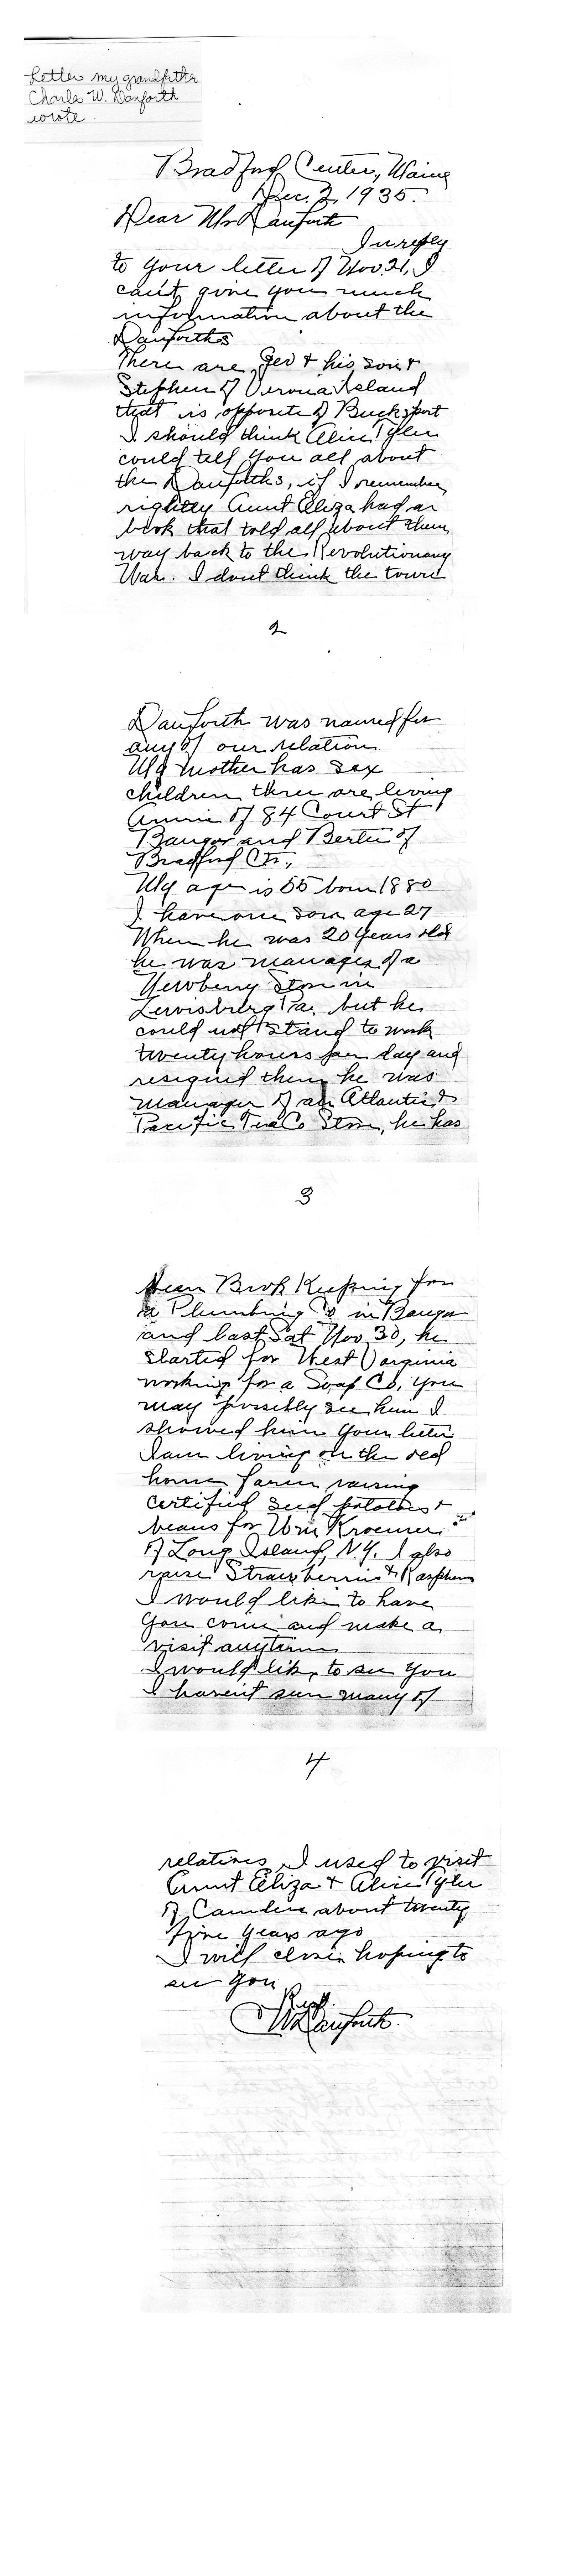 Letter my grandfather
Charles W. Danforth
wrote.
Bradford Center, Maine
Dec. 2, 1935.
Dear Mr Danforth
In reply
to your letter of Nov. 21, I
can't give you much
information about the
Danforths
There are Geo & his son &
Stephen of Verona Island
that is opposite of Bucksport
I should think Alice Tyler
could tell you all about
the Danforths, if I remember
rightly Aunt Eliza had a
book that told all about them
way back to the Revolutionary
War. I dont think the town
2
Danforth was named for
any of our relation
My mother has six
children three are living
Annie of 84 Court St
Bangor and Bertie of
Bradford Ctr,
My age is 55 born 1880
I have one son age 27
When he was 20 years old
he was manager of a
Newberry Store in
Lewisburg Pa. but he
could not stand to work
twenty hours per day and
resigned then he was
manager of an Atlantic &
Pacific Tea Co Store, he has
3
been Book Keeping for
a Plumbing Co in Bangor
and last Sat Nov 30, he
started for West Virginia
working for a Soap Co, you
may possibly see him I
showed him your letter
I am living on the old
home farm raising
certified seed potatoes &
beans for Wm Kroemer
of Long Island, N.Y. I also
raise Strawberries &
I would like to have
you come and make a
visit anytime
I would like to see you
I haven't seen many of
4
relatives, I used to visit
Aunt Eliza & Alice Tyler
of Camden about twenty
five years ago
I will close hoping to
see you
Resp.
CW Danforth.